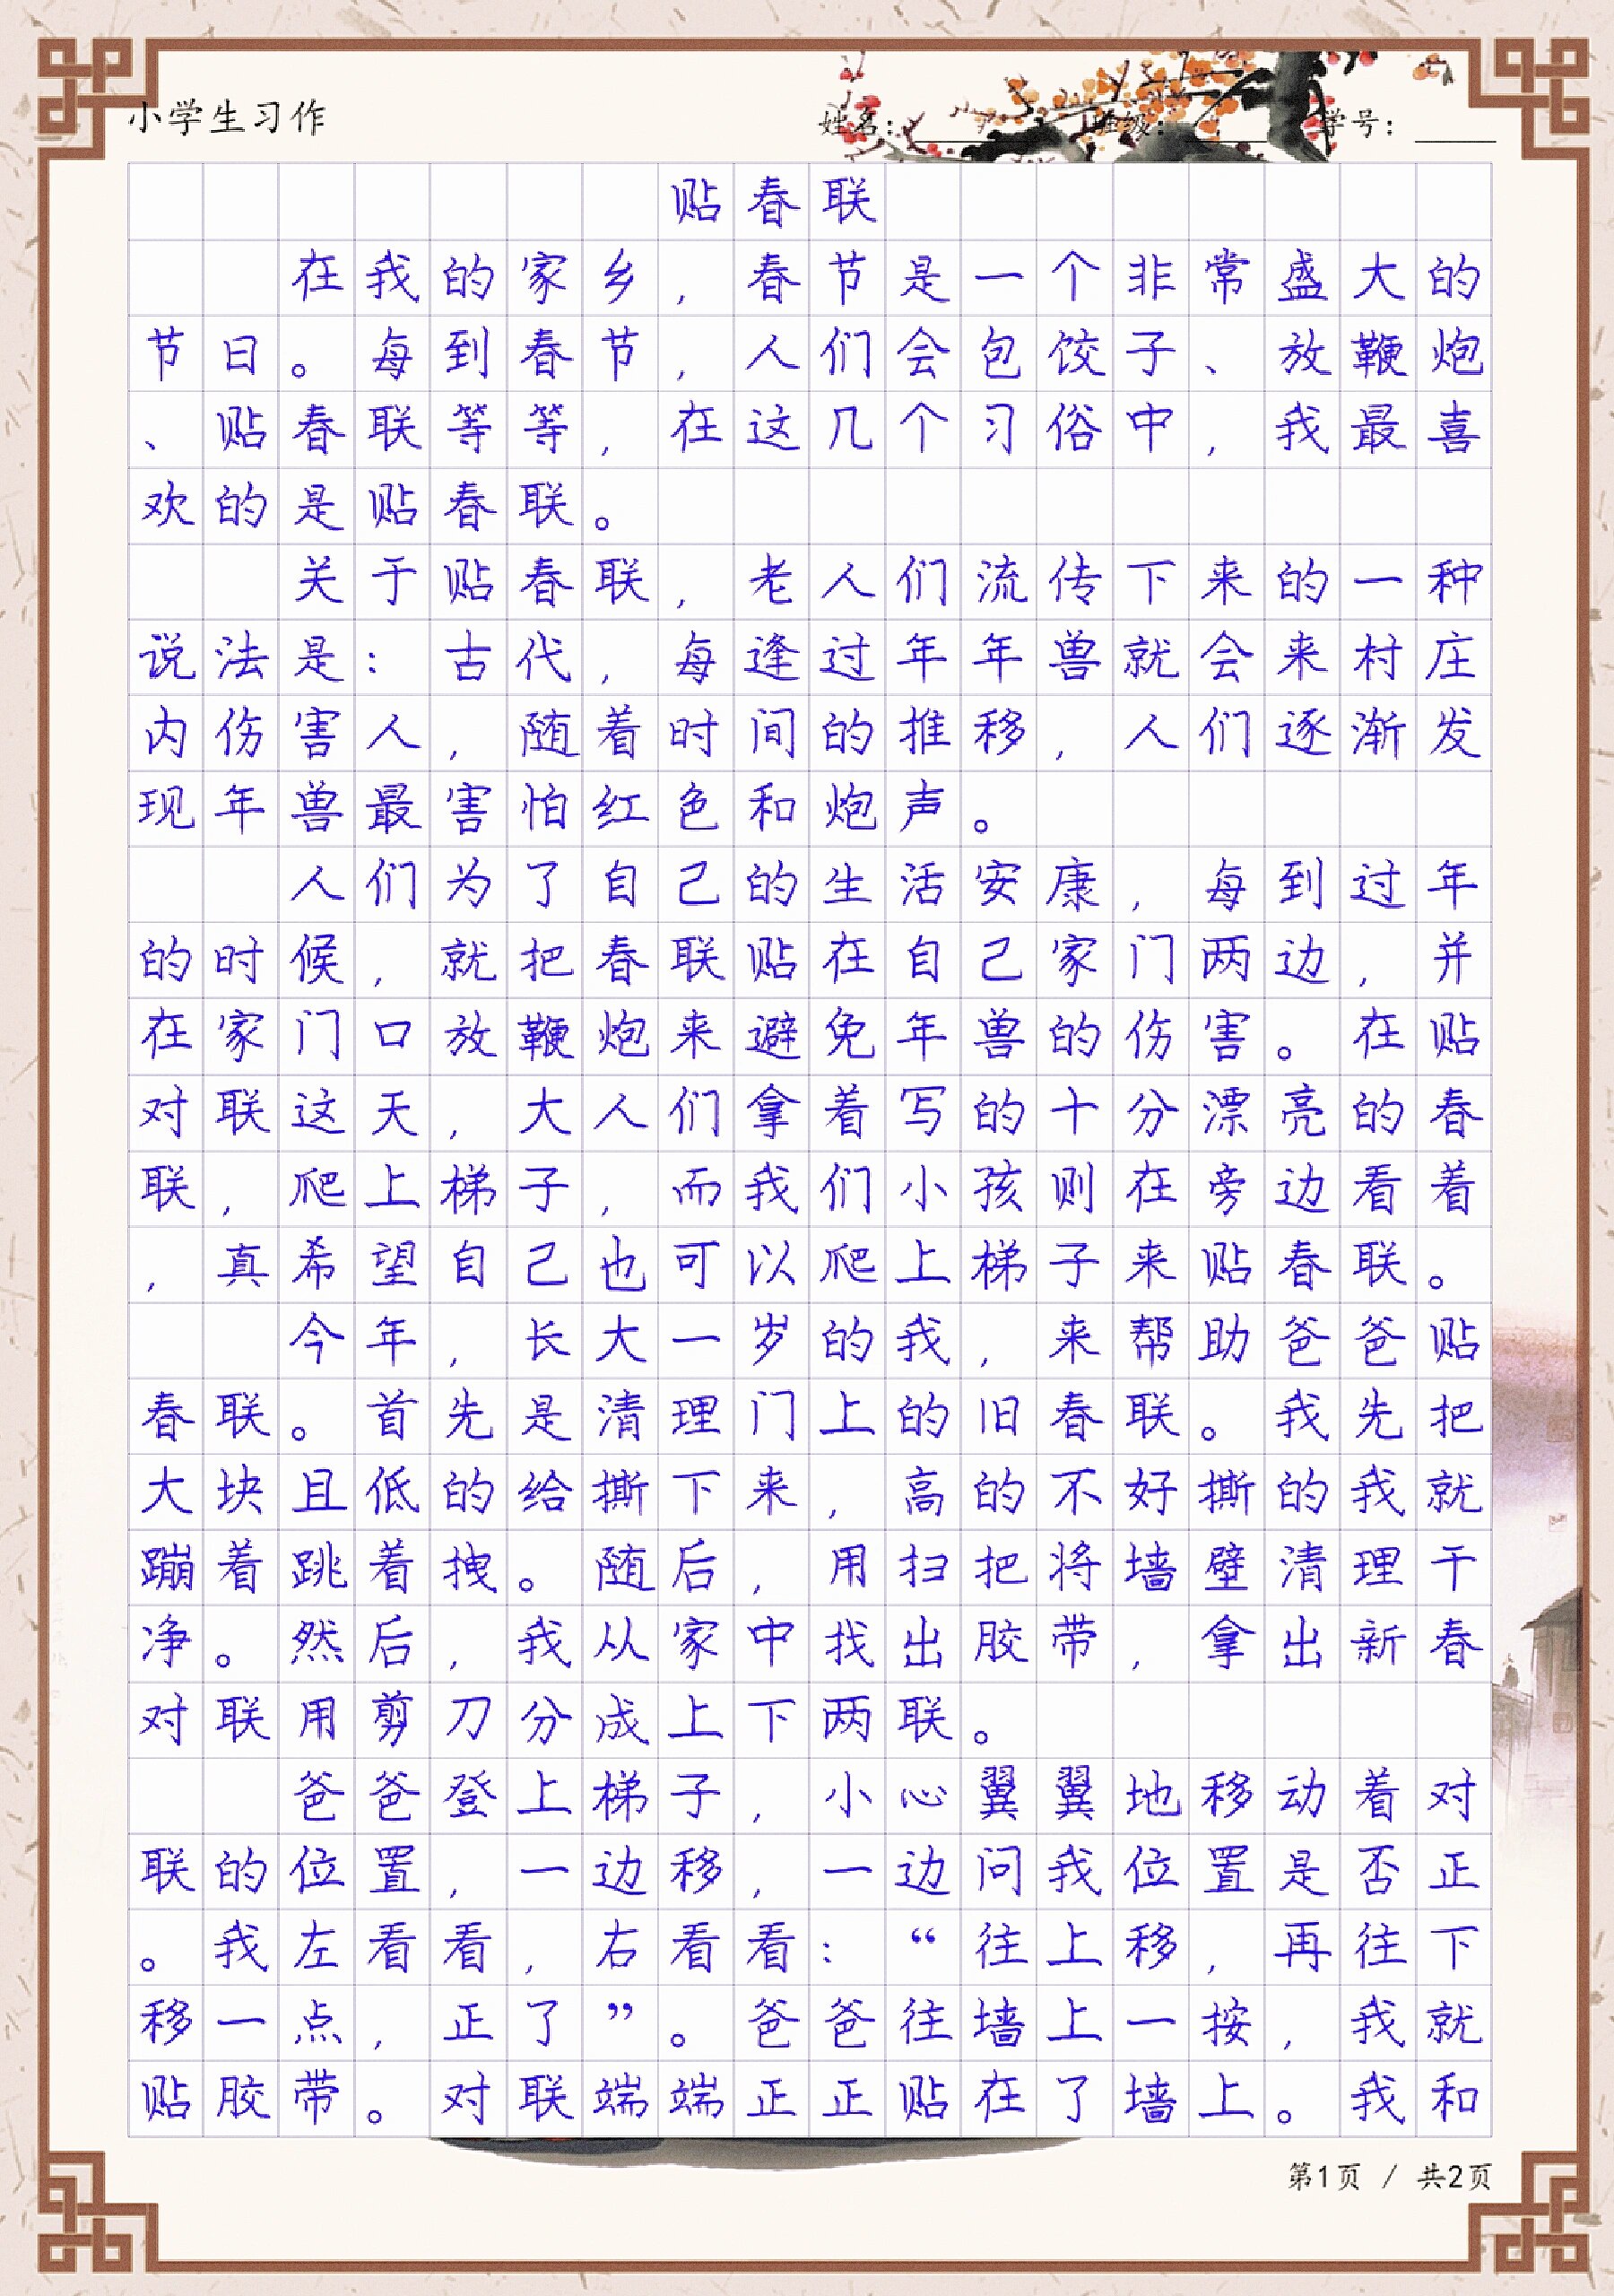 小学生习作
姓名：
班级：
学号：
贴春联
在我的家乡，春节是一个非常盛大的
节日。每到春节，人们会包饺子、放鞭炮
、贴春联等等，在这几个习俗中，我最喜
欢的是贴春联。
关于贴春联，老人们流传下来的一种
说法是：古代，每逢过年年兽就会来村庄
内伤害人，随着时间的推移，人们逐渐发
现年兽最害怕红色和炮声。
人们为了自己的生活安康，每到过年
的时候，就把春联贴在自己家门两边，并
在家门口放鞭炮来避免年兽的伤害。在贴
对联这天，大人们拿着写的十分漂亮的春
联，爬上梯子，而我们小孩则在旁边看着
，真希望自己也可以爬上梯子来贴春联。
今年，长大一岁的我，来帮助爸爸贴
春联。首先是清理门上的旧春联。我先把
大块且低的给撕下来，高的不好撕的我就
蹦着跳着拽。随后，用扫把将墙壁清理干
净。然后，我从家中找出胶带，拿出新春
对联用剪刀分成上下两联。
爸爸登上梯子，小心翼翼地移动着对
联的位置，一边移，一边问我位置是否正
。我左看看，右看看：“往上移，再往下
移一点，正了”。爸爸往墙上一按，我就
贴胶带。对联端端正正贴在了墙上。我和
第1页 / 共2页